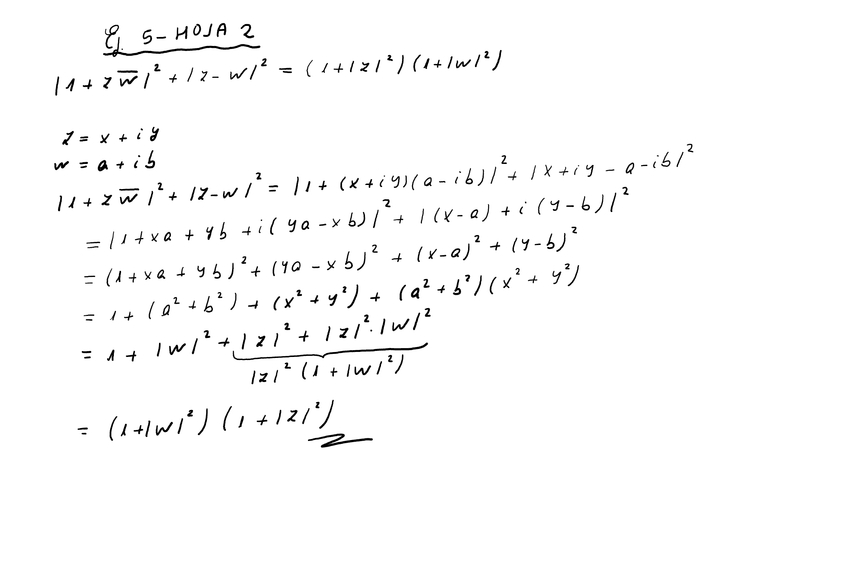 Ej. 5 - HOJA 2
|1 + z w̅|² + |z - w|² = (1 + |z|²)(1 + |w|²)
z = x + iy
w = a + ib
|1 + z w̅|² + |z - w|² = |1 + (x + iy)(a - ib)|² + |x + iy - a - ib|²
= |1 + xa + yb + i(ya - xb)|² + |(x - a) + i(y - b)|²
= (1 + xa + yb)² + (ya - xb)² + (x - a)² + (y - b)²
= 1 + (a² + b²) + (x² + y²) + (a² + b²)(x² + y²)
= 1 + |w|² + |z|² + |z|² · |w|²
|z|² (1 + |w|²)
= (1 + |w|²)(1 + |z|²)